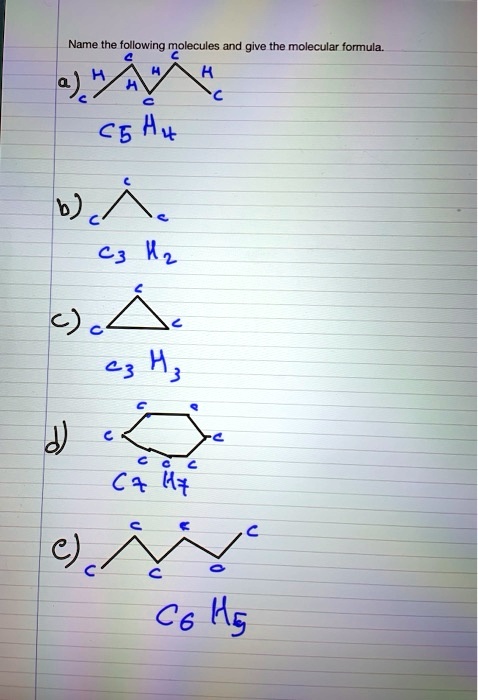 Name the following molecules and give the molecular formula.
a) C H C H C H C H C
C5 H4
b) C C C
C3 H2
c) C C C
C3 H3
d) C C C C C C C
C7 H7
e) C C C C C C
C6 H5